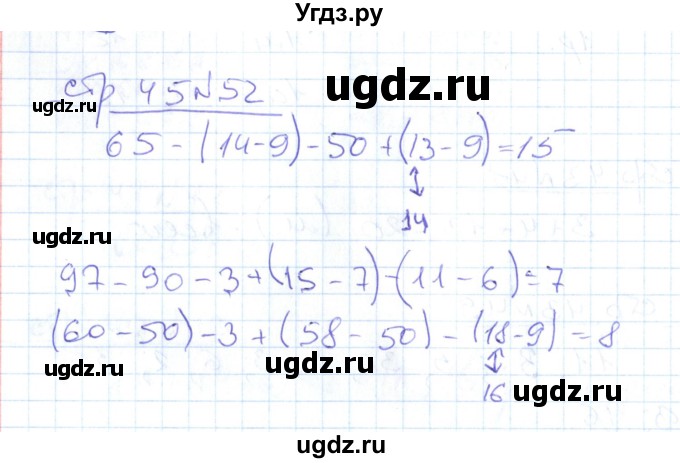 Угдз.ру
стр 45 N 52
65 - (14-9) - 50 + (13 - 9) = 15
↕
14
97 - 90 - 3 + (15 - 7) - (11 - 6) = 7
(60 - 50) - 3 + (58 - 50) - (18 - 9) = 8
↕
16
ugdz.ru
ugdz.ru
ugdz.ru
ugdz.ru
ugdz.ru
ugdz.ru
ugdz.ru
ugdz.ru
ugdz.ru